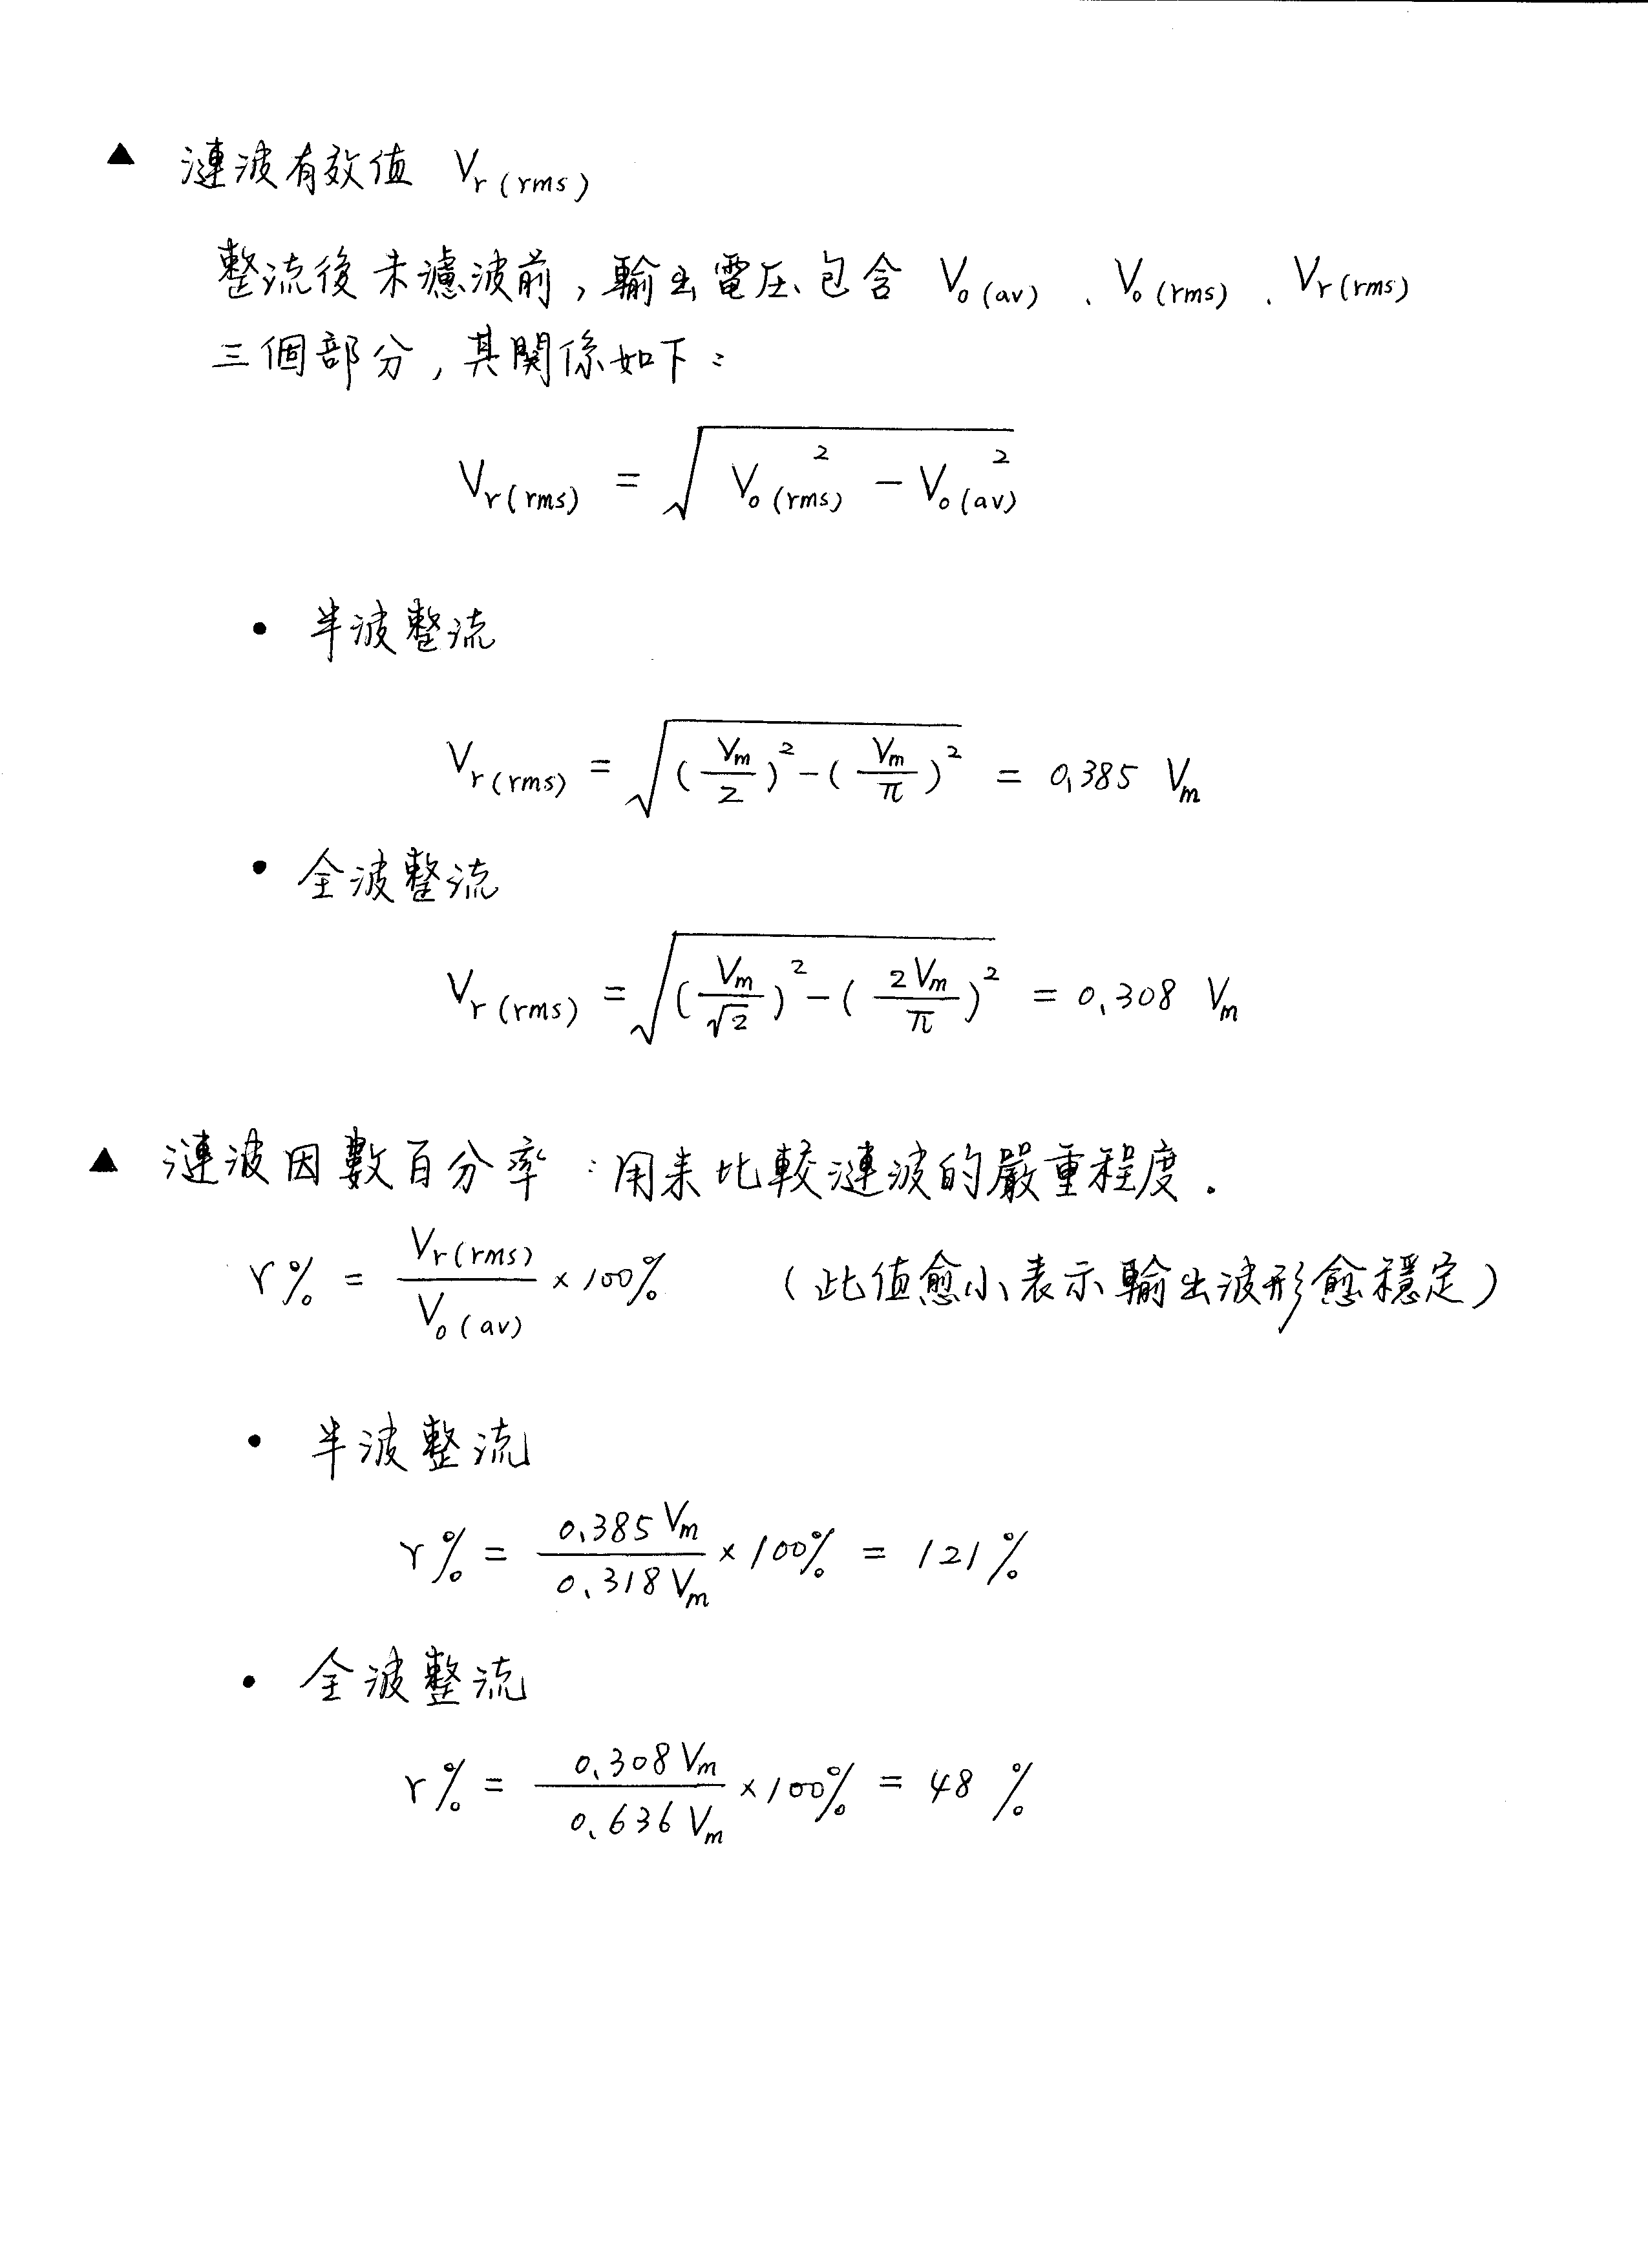 ▲ 漣波有效值 Vr(rms)
整流後未濾波前,輸出電压包含 Vo(av)、Vo(rms)、Vr(rms)
三個部分,其関係如下:
Vr(rms) = √(Vo(rms)² − Vo(av)²)
• 半波整流
Vr(rms) = √((Vm/2)² − (Vm/π)²) = 0.385 Vm
• 全波整流
Vr(rms) = √((Vm/√2)² − (2Vm/π)²) = 0.308 Vm
▲ 漣波因數百分率:用来比較漣波的嚴重程度.
r% = Vr(rms)/Vo(av) × 100% (此值愈小表示輸出波形愈穩定)
• 半波整流
r% = 0.385Vm/0.318Vm × 100% = 121%
• 全波整流
r% = 0.308Vm/0.636Vm × 100% = 48%